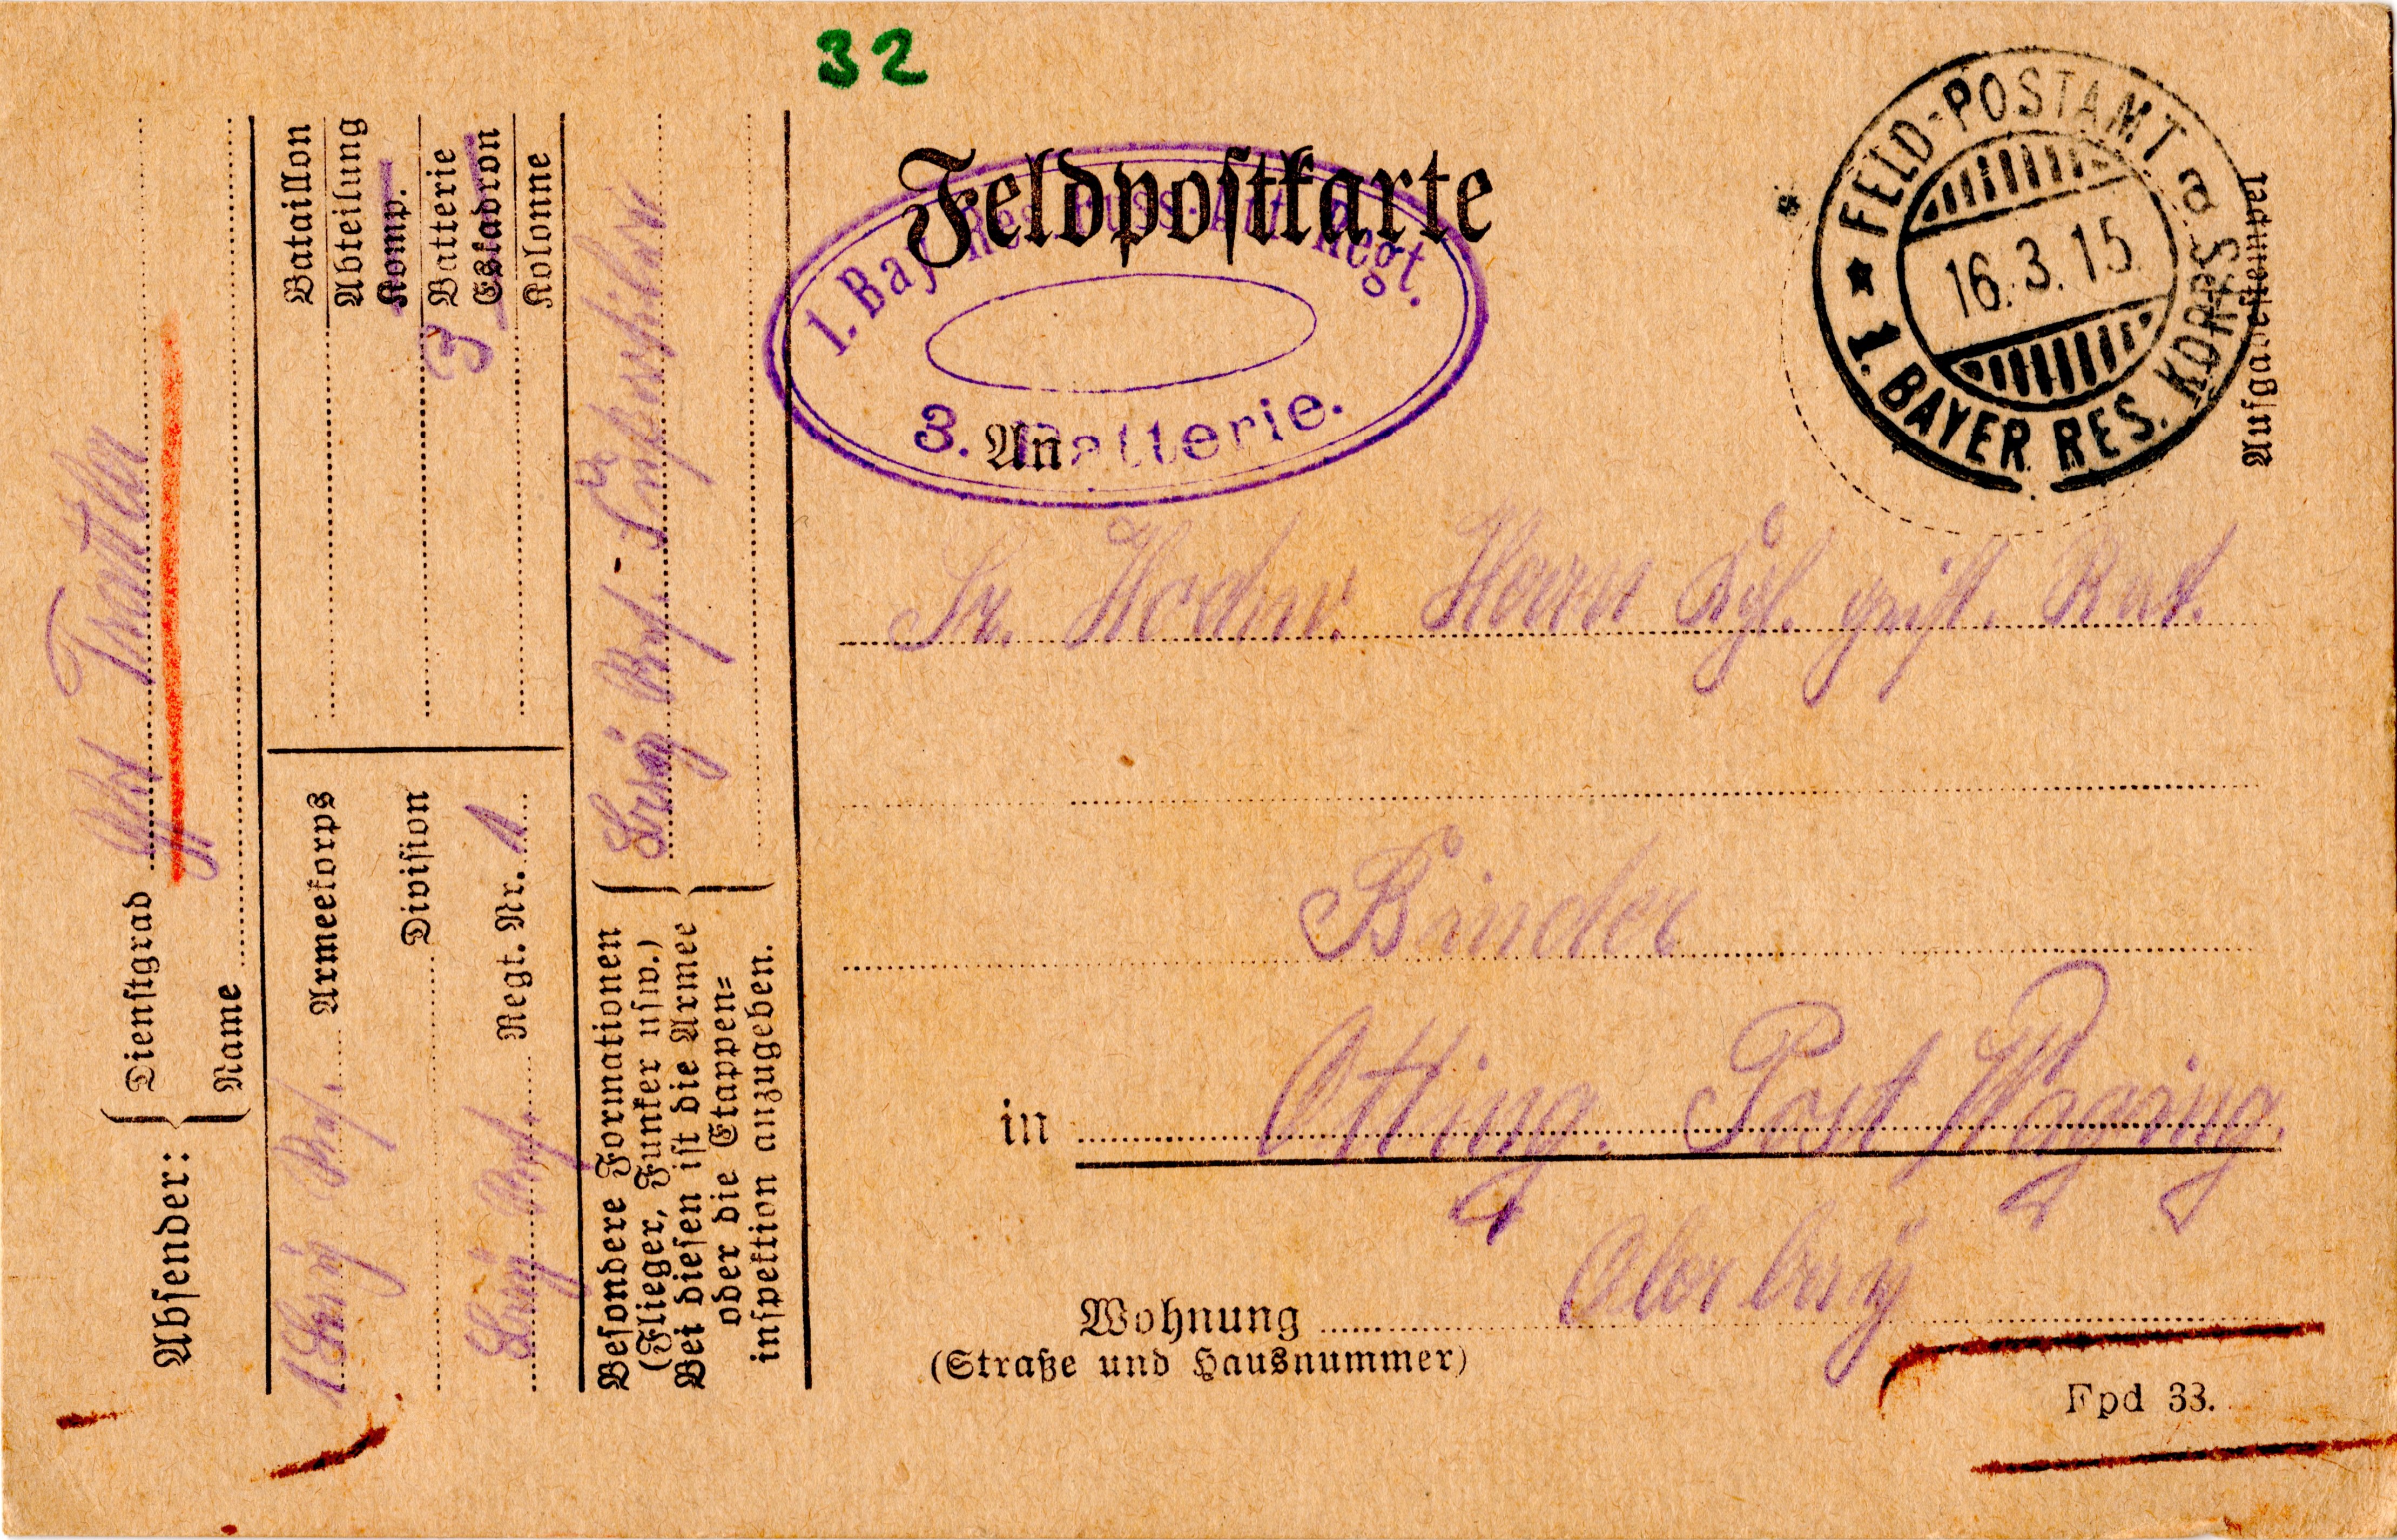 32
Feldpostkarte
1. Bay. Res. Fuss-Art. Regt.
3. Batterie.
FELD-POSTAMT a
16.3.15
1. BAYER. RES. KORPS
Aufgabestempel
An
Sr. Hochw. Herrn Kgl. geistl. Rat.
Binder
in Otting. Post Waging.
Wohnung Oberbay
(Straße und Hausnummer)
Fpd 33.
Absender:
Dienstgrad
Name
1 Armeekorps
Division
Regt. Nr. 1
Bataillon
Abteilung
Komp.
Batterie 3
Eskadron
Kolonne
Besondere Formationen
(Flieger, Funker usw.)
Bei diesen ist die Armee
oder die Etappen=
inspektion anzugeben.